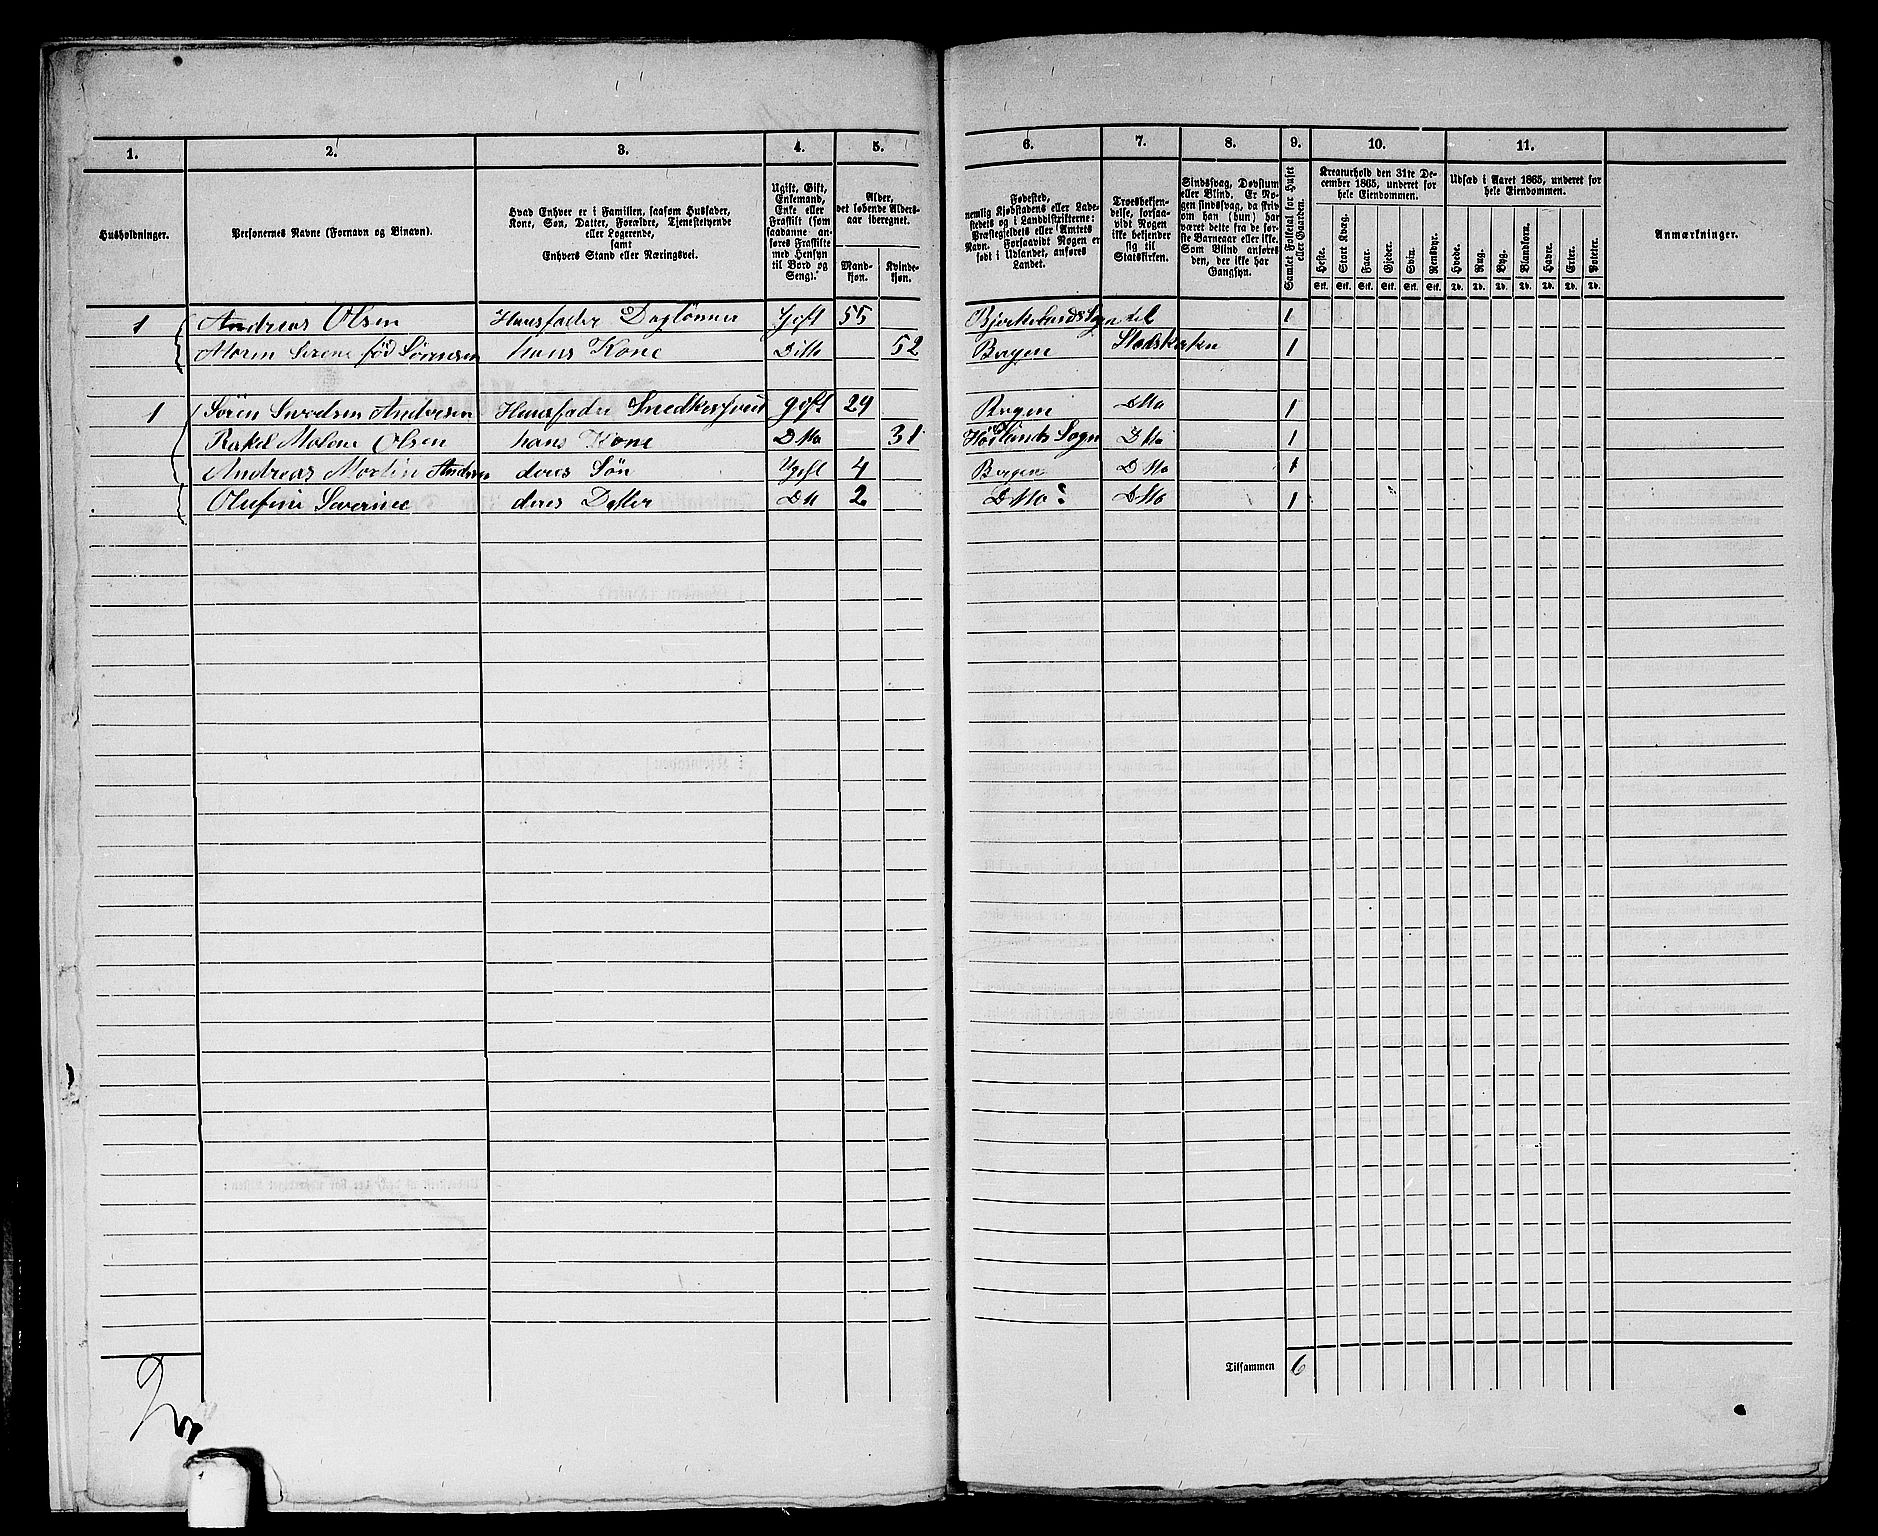 1. 2. 3. 4. 5. 6. 7. 8. 9. 10. 11.
Husholdninger.
Personernes Navne (Fornavn og Binavn).
Hvad Enhver er i Familien, saasom Husfader,
Kone, Søn, Datter, Forældre, Tjenestetyende
eller Logerende,
samt
Enhvers Stand eller Næringsvei.
Ugift, Gift,
Enkemand,
Enke eller
Fraskilt (som
saadanne an-
føres Fraskilte
med Hensyn
til Bord og
Seng).
Alder,
det løbende Alders-
aar iberegnet.
Mand-
kjøn.
Kvinde-
kjøn.
Fødested,
nemlig Kjøbstadens eller Lade-
stedets og i Landdistrikterne:
Præstegjeldets eller Amtets
Navn. Forsaavidt Nogen er
født i Udlandet, anføres
Landet.
Troesbekjen-
delse, forsaa-
vidt Nogen
ikke bekjender
sig til
Statskirken.
Sindssvag, Døvstum
eller Blind. Er No-
gen sindssvag, da skriv
om han (hun) har
været dette fra de før-
ste Barneaar eller ikke.
Som Blind anføres
den, der ikke har
Gangsyn.
Samlet Folketal for Huset
eller Gaarden.
Kreaturhold den 31te De-
cember 1865, underet for
hele Eiendommen.
Heste. Stort Kvæg. Faar. Gjeder. Sviin. Rensdyr.
Stk. Stk. Stk. Stk. Stk. Stk.
Udsæd i Aaret 1865, underet for
hele Eiendommen.
Hvede. Rug. Byg. Blandkorn. Havre. Erter. Poteter.
Td. Td. Td. Td. Td. Td. Td.
Anmærkninger.
1 Andreas Olsen Huusfader Daglønner Gift 55 Bjerkelands Sogn til 1
Maren Serene fød Sørensen hans Kone Ditto 52 Bergen Statskirken 1
1 Søren Andersen Huusfader gift 29 Bergen Dtto 1
Rakel Malene Olsen hans Kone Dtto 31 Sogn Dtto 1
Andreas Martin Andersen deres Søn Ugift 4 Bergen Dtto 1
Olufine Severine deres Datter Dtt 2 Ditto Dtto 1
Tilsammen 6